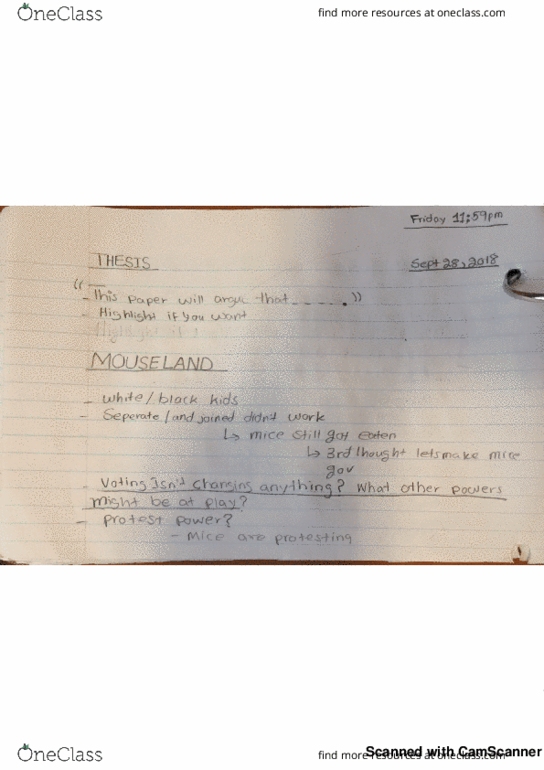 OneClass
find more resources at oneclass.com
Friday 11:59pm
THESIS
Sept 28, 2018
"
- This paper will argue that _ _ _ _ _ . "
- Highlight if you want
MOUSELAND
- White/black kids
- Seperate/and joined didn't work
↳ mice still got eaten
↳ 3rd thought lets make mice
gov
- Voting Isn't changing anything? What other powers
might be at play?
- Protest power?
- Mice are protesting
OneClass
find more resources at oneclass.com
Scanned with CamScanner